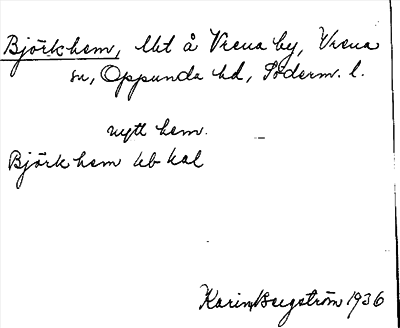 Björkhem, lht å Vrena by, Vrena
sn, Oppunda hd, Söderm. l.
nytt hem.
Björkhem kb kal
Karin Bergström 1936